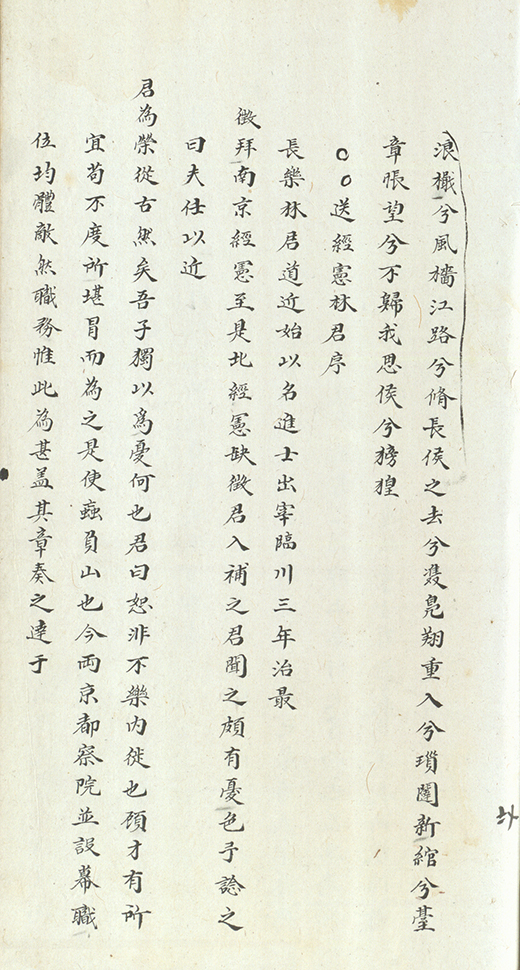 浪檝兮風檣江路兮脩長侯之去兮凫翔重入兮瑣闥新綰兮薹
章悵望兮不歸我思侯兮徬徨
○○送經憲林君序
長樂林君道近始以名進士出宰臨川三年治最
徵拜南京經憲至是北經憲缺徵君入補之君聞之頗有憂色予諗之
曰夫仕以近
君為榮從古然矣吾子獨以為憂何也君曰恕非不樂内徙也顧才有所
宜苟不度所堪冒而為之是使蝱負山也今両京都察院並設幕職
位均體敵然職務惟此為甚盖其章奏之達于